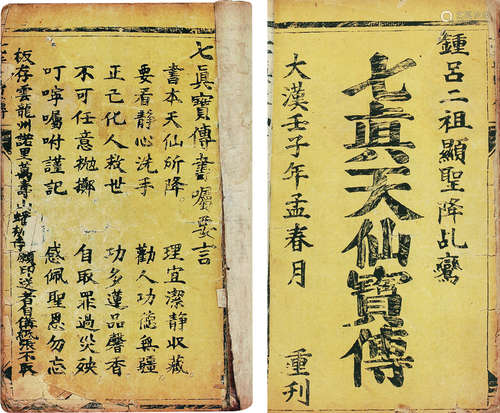 鍾呂二祖顯聖降乩鸞
七眞天仙寶傳
大漢壬子年孟春月 重刊
七眞寶傳書囑要言
書本天仙所降 理宜潔静收藏
要看静心洗手 勸人功德無疆
正己化人救世 功多蓮品馨香
不可任意抛擲 自取罪過災殃
叮嚀囑咐謹記 感佩聖恩勿忘
板存雲龍州諾里萬壽山 願印送者自俻紙張不取